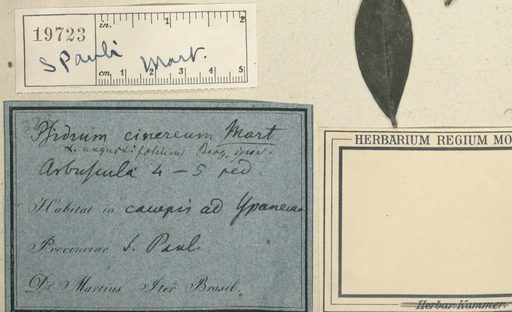 19723
in. 1 2
S Pauli Mart.
cm. 1 2 3 4 5
Psidium cinereum Mart
L. angustifolium Berg.
Arbuscula 4 – 5 ped.
Habitat in campis ad Ypanema
Provinciae S. Pauli
Dr Martius Iter Brasil.
HERBARIUM REGIUM MO
Herbar. Kummer.